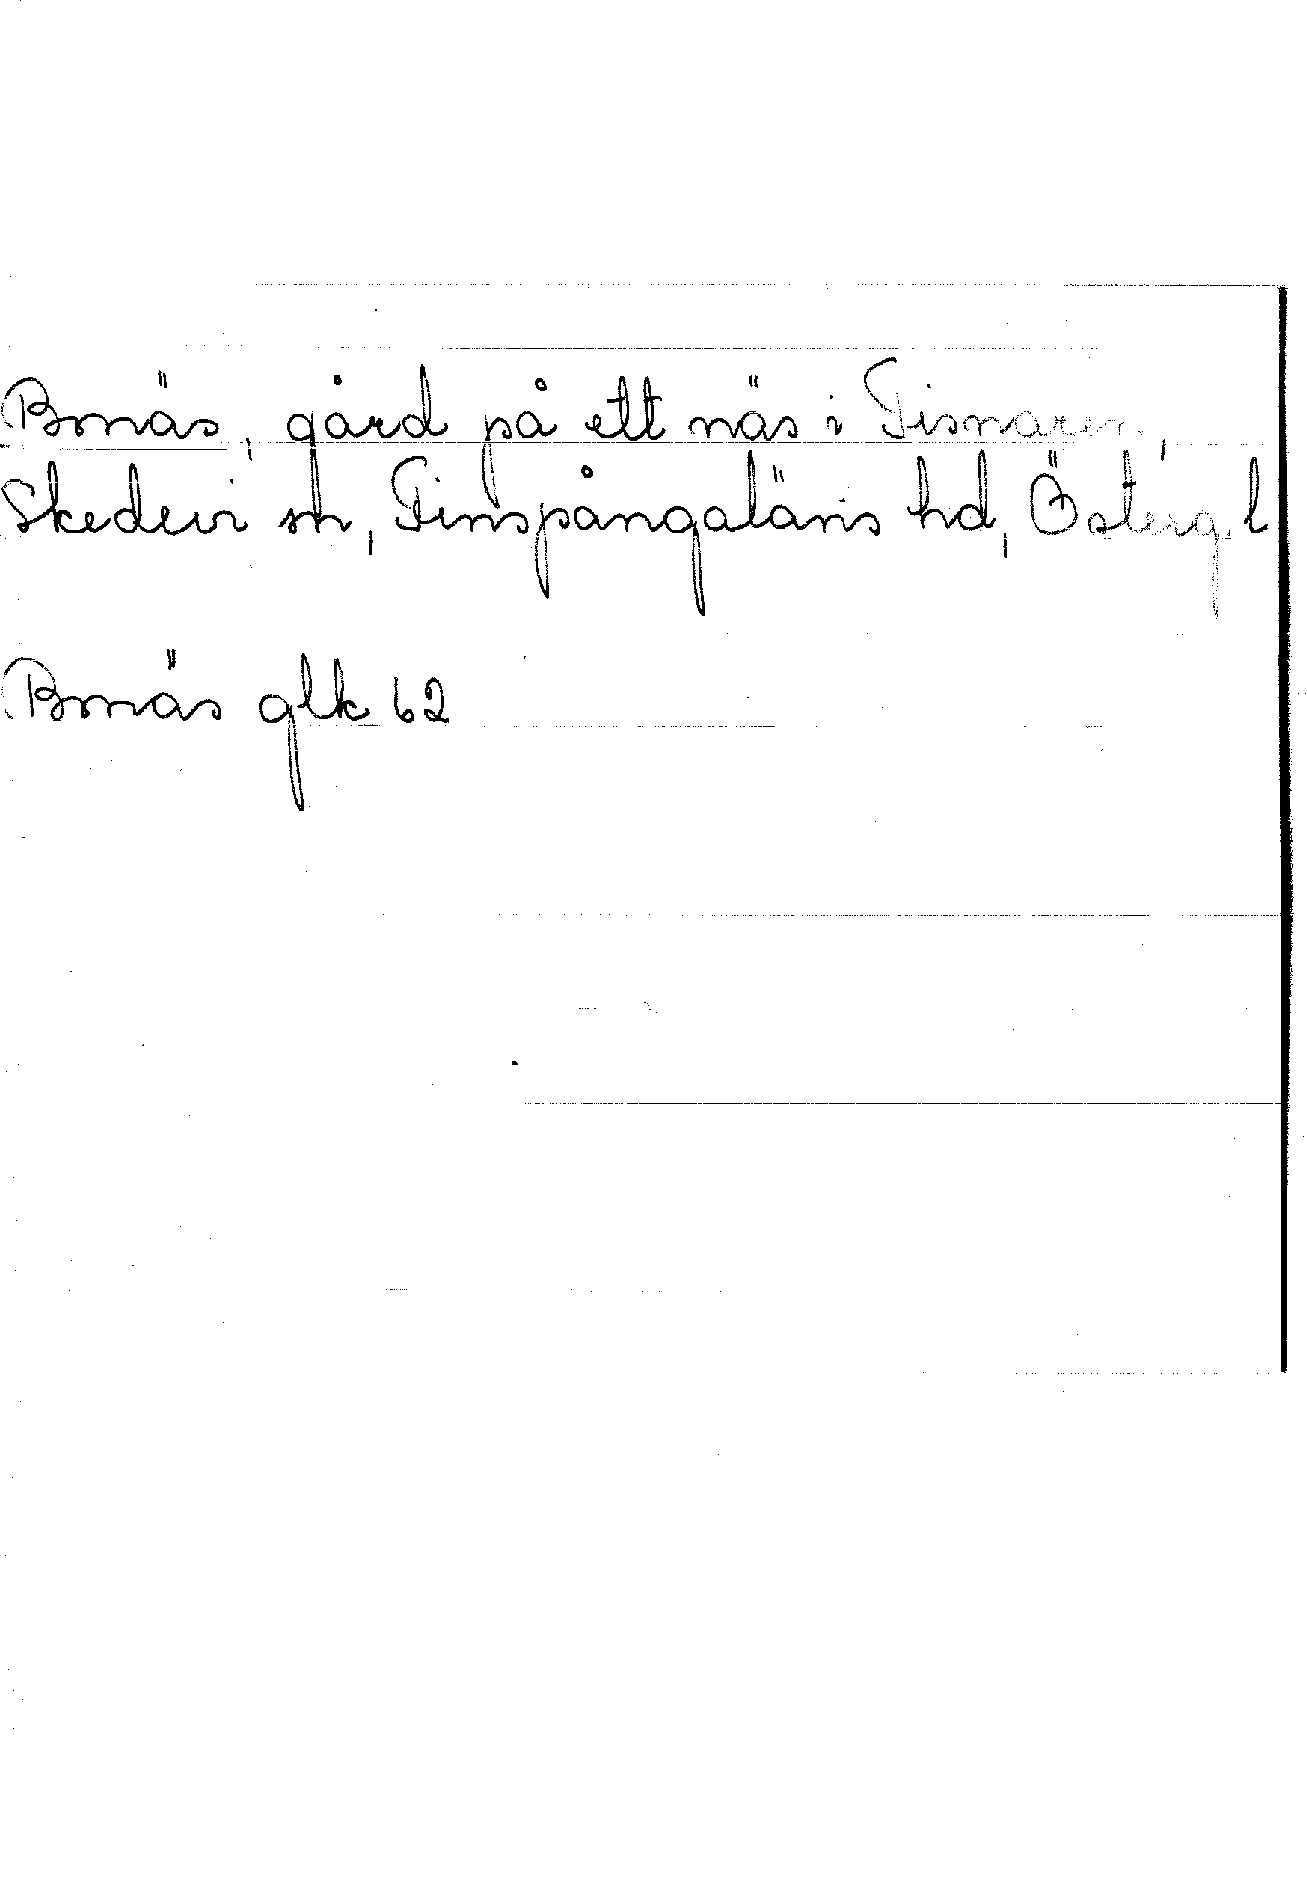 Bonäs, gård på ett näs i Tisnaren,
Skedevi sn, Finspångaläns hd, Österg. l
Bonäs glk 62